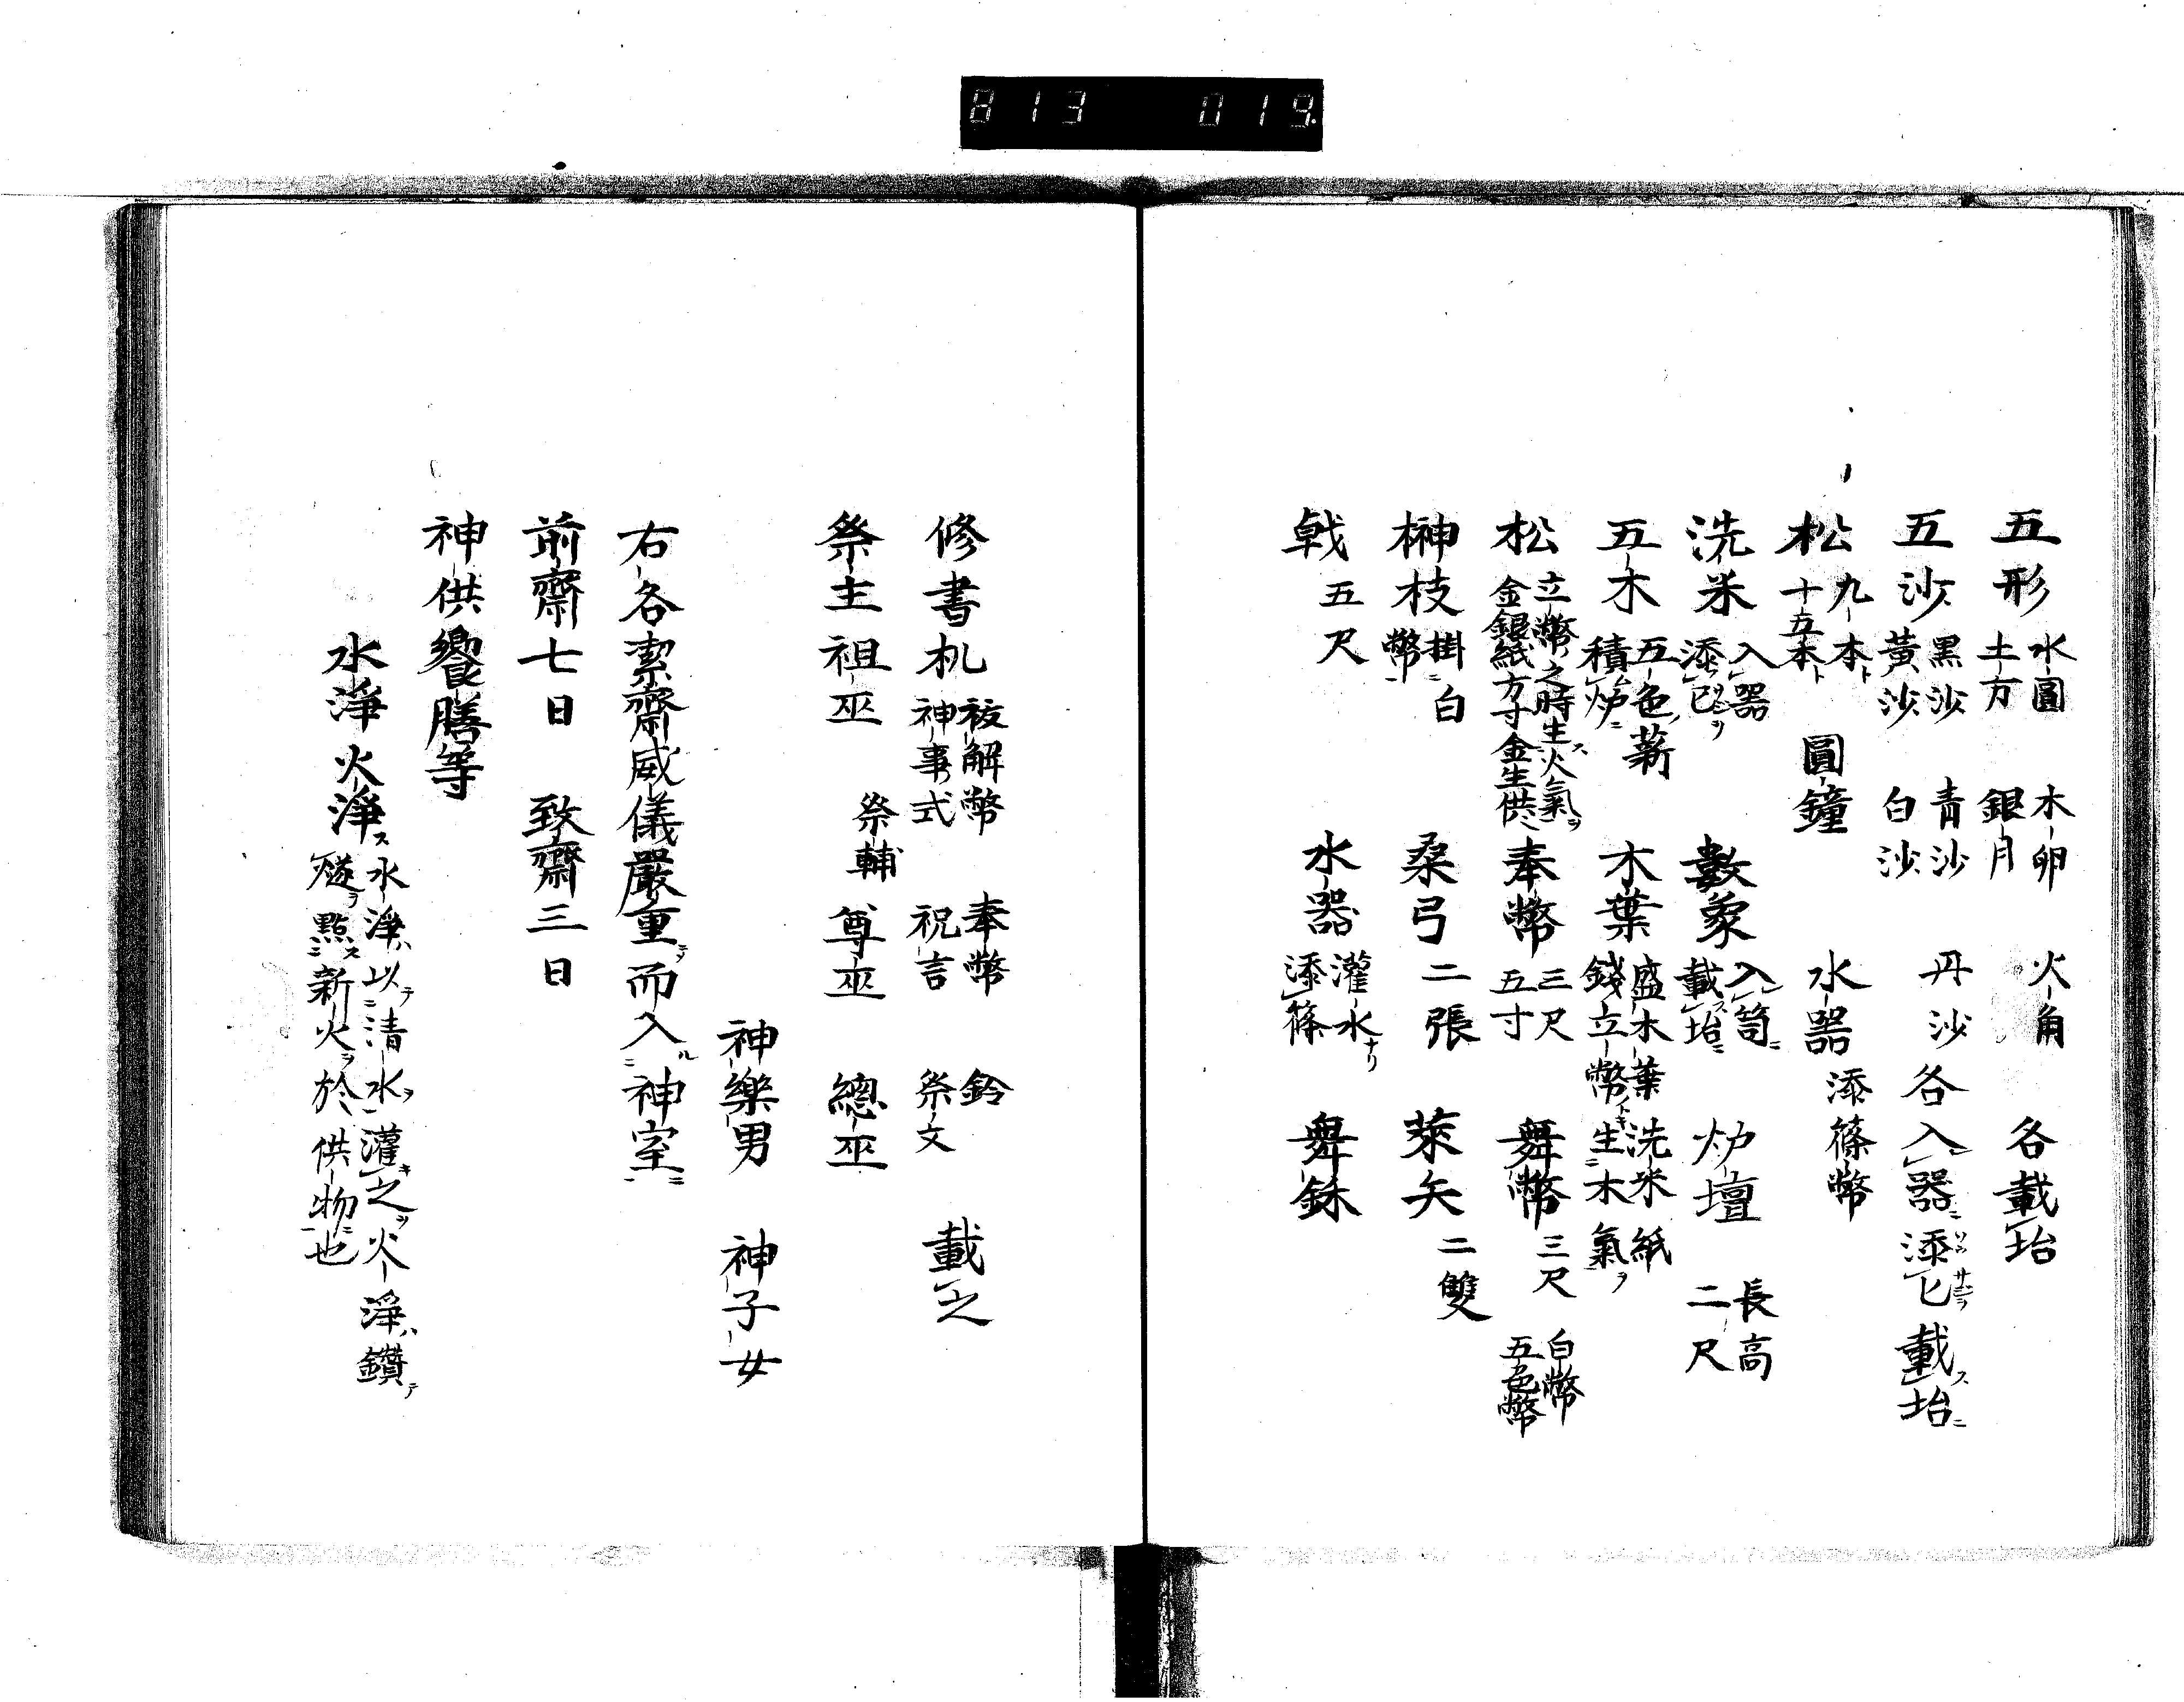 813 019
五形 水圓 土方 木卵 銀月 火角 各載坮
五沙 黒沙 黃沙 青沙 白沙 丹沙 各入器ニ添匕載ス坮ニ
松 九本ト 十五本ト 圓鐘 水器 添篠幣
洗米 入器 添匕ヲ 數象 入筒ニ 載ス坮ニ 炉壇 長高 二尺
五木 五色ノ薪 積炉ニ 木葉 盛木葉洗米紙 錢立幣トキ生木氣ヲ
松 立幣之時生ス火氣ヲ 金銀紙方寸金生供 奉幣 三尺 五寸 舞幣 三尺 白幣 五色幣
榊枝 掛白 幣ニ 桑弓 二張 萊矢 二雙
戟 五尺 水器 灌水ナリ 添篠 舞鉌
修書机 祓解幣 神事式 奉幣 祝言 鈴 祭文 載之
祭主 祖巫 祭輔 尊巫 總巫
神樂男 神子女
右各絜齋威儀嚴重ヲ而入ル神室ニ
前齋七日 致齋三日
神供饗膳等
水淨火淨ス 水淨ハ以テ清水ヲ灌キ之ヲ火淨ハ鑽テ
燧ヲ點ス新火ヲ於供物ニ也